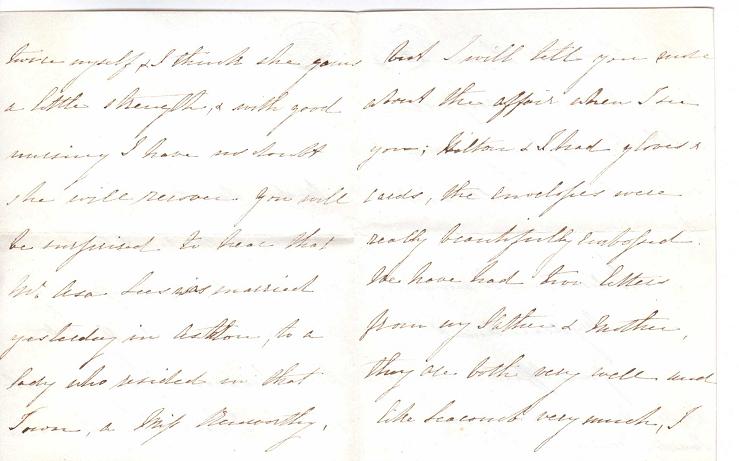 twice myself, & I think she gains
a little strength, & with good
nursing I have no doubt
she will recover. You will
be surprised to hear that
Mr. Asa Lees was married
yesterday in Ashton, to a
lady who resided in that
Town, a Miss Kenworthy,
but I will tell you more
about the affair when I see
you; Hilton & I had gloves &
cards, the envelopes were
really beautifully embossed.
We have had two letters
from my Father & Mother,
they are both very well and
like Seacomb very much, I